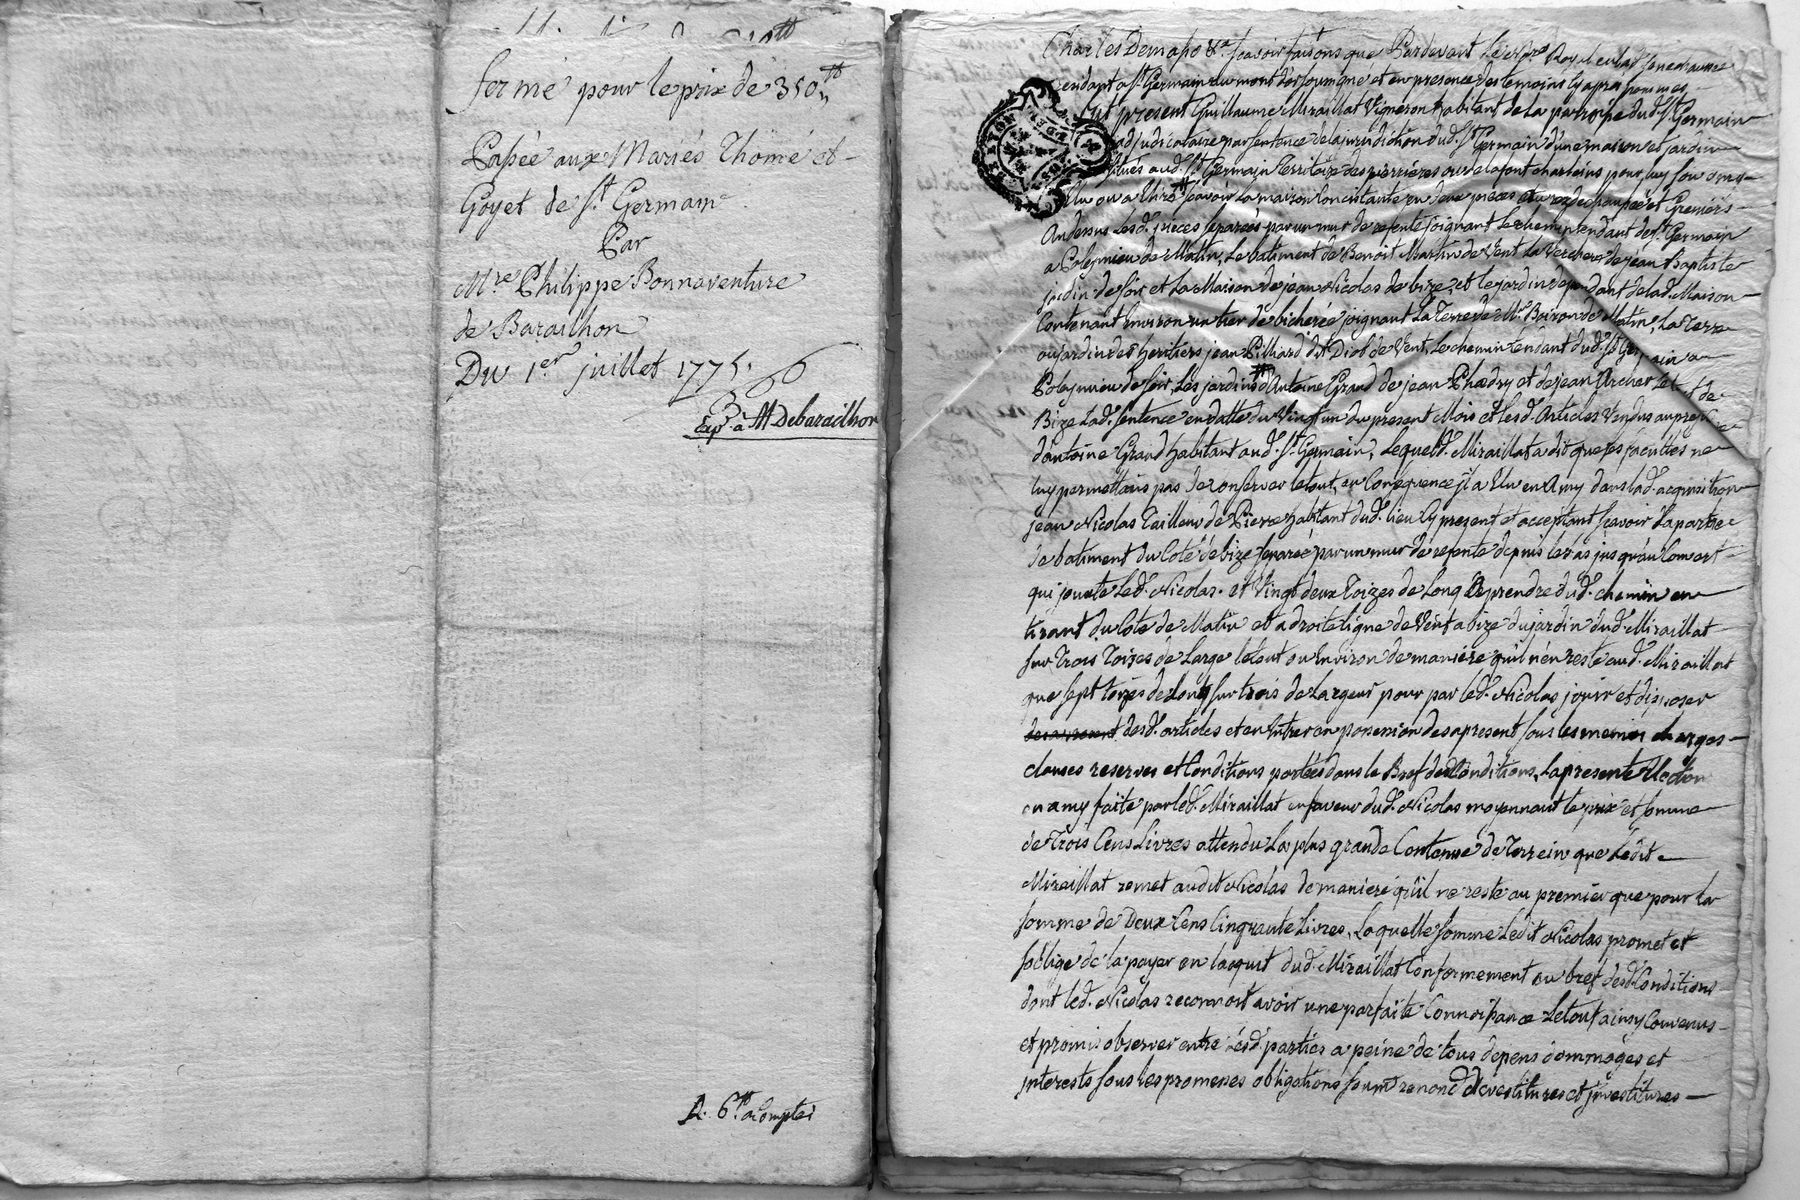 fermé pour le prix de 350 ₶
Passée aux Mariés Thomé et
Goyet de St. Germain
Par
Mre Philippe Bonnaventure
de Barailhon
Du 1er juillet 1775.
Exp. a M Debarailhon
R. 6 ₶ acomptes
Charles Demaso &a scavoir faisons que Pardevant Le Nore Royal en lad. senechaussee
residant a St. Germain au mont d'or soussigné et en presence des temoins cy apré nommés
fut present Guillaume Miraillat Vigneron habitant de la parroisse dud. St. Germain
adjudicataire par sentence de la jurisdiction dud. St. Germain d'une maison et jardin
situés aud. St. Germain Territoire des perrières ou de la font charleins pour luy son ami
Elu ou a Elire, scavoir La maison Consistante en deux pieces au rez de chaussée et Greniers
Audessus Lesd. pieces separées par un mur de refente joignant le chemin tendant de St. Germain
a Poleymieu de Matin, Le batiment de Benoit Martin de Vent La Verchere de jean Baptiste
jardin de soir et La Maison de jean Nicolas de bize, et le jardin dependant de lad. Maison
Contenant environ un tier de bicherée joignant La Terre de Mr. Boiron de Matin, La Terre
ou jardin des heritiers jean Pilliard dit Diot de Vent, Le chemin tendant dud. St. Germain a
Poleymieu de soir, Les jardins d'Antoine Grand de jean Phedry et de jean Archer Let de
Bize Lad. sentence en datte du Vingt un du present Mois et Lesd. Articles Vendus au prejudice
d'antoine Grand habitant aud. St. Germain, Lequel d. Miraillat a dit que ses facultés ne
luy permettans pas de conserver le tout, en Consequence il a Elu en Amy dans lad. acquisition
jean Nicolas Tailleur de Pierre habitant dud. lieu Cy present et acceptant scavoir La partie
de batiment du Coté de bize separée par un mur de refente depuis le ras jusqu'au Couvert
qui jouxte Led. Nicolas. et Vingt deux Toizes de Long a prendre dud. chemin en
tirant du Coté de Matin et a droite ligne de Vent a bize du jardin dud. Miraillat
sur Trois Toizes de Large le tout ou Environ de maniere qu'il n'en reste aud. Miraillat
que sept toizes de Long sur trois de Largeur pour par led. Nicolas jouir et disposer
desd. articles et en Entrer en possession des a present sous les memes charges
clauses reserves et Conditions portées dans le Bref des Conditions, La presente Election
en amy faite par led. Miraillat en faveur dud. Nicolas moyennant le prix et somme
de Trois Cens Livres attendu La plus grande Contenue de Terrein que Ledit
Miraillat remet audit Nicolas de maniere qu'il ne reste au premier que pour la
somme de Deux Cens Cinquante Livres, Laquelle somme Ledit Nicolas promet et
s'oblige de la payer en l'acquit dud. Miraillat Conformement au bref desd. Conditions
dont led. Nicolas reconnoit avoir une parfaite Connoissance Le tout ainsy Convenu
et promis observer entre Lesd. parties a peine de tous depens dommages et
interests sous les promesses obligations soum. renonc. devestitures et jnvestitures